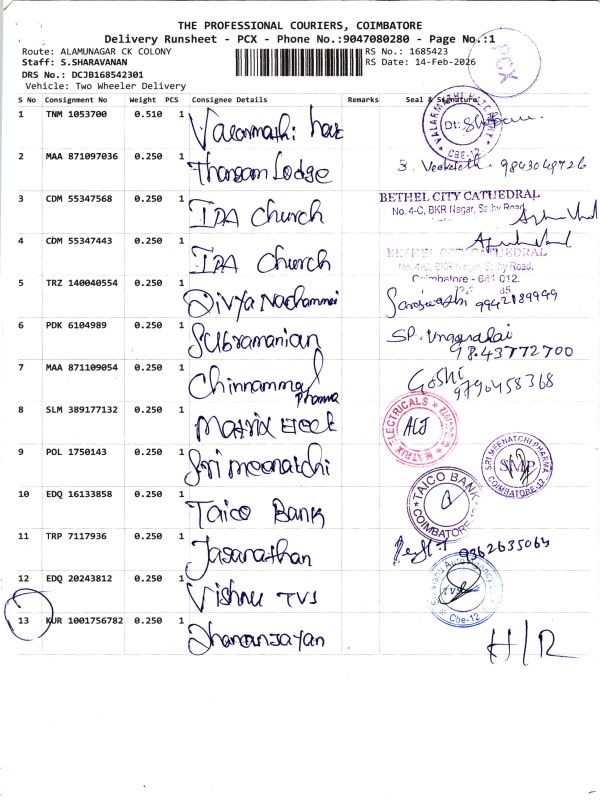 THE PROFESSIONAL COURIERS, COIMBATORE
Delivery Runsheet - PCX - Phone No.:9047080280 - Page No.:1
Route: ALAMUNAGAR CK COLONY
RS No.: 1685423
Staff: S.SHARAVANAN
RS Date: 14-Feb-2026
DRS No.: DCJB168542301
Vehicle: Two Wheeler Delivery
PCX
S No Consignment No Weight PCS Consignee Details Remarks Seal & Signature
1 TNM 1053700 0.510 1
VALARMATHI
Dt:
CBE-12
2 MAA 871097036 0.250 1 Thangam Lodge
9843049726
3 CDM 55347568 0.250 1 IPA Church
BETHEL CITY CATHEDRAL
No. 4-C, BKR Nagar,
4 CDM 55347443 0.250 1 IPA Church
BETHEL CITY CATHEDRAL
No. 4-C, BKR Nagar, Road,
Coimbatore - 641 012.
5 TRZ 140040554 0.250 1 Divya Nachammai
9942189949
6 PDK 6104989 0.250 1 Subramanian
98.43772700
7 MAA 871109054 0.250 1 Chinnammal
Pharma
9790458368
8 SLM 389177132 0.250 1 Matrix Elect
MATRIX ELECTRICALS
9 POL 1750143 0.250 1 Sri meenatchi
SRI MEENATCHI PHARMA
SMP
COIMBATORE-12
10 EDQ 16133858 0.250 1 Taico Bank
TAICO BANK
COIMBATORE
11 TRP 7117936 0.250 1
9362635063
12 EDQ 20243812 0.250 1 Vishnu TVS
TVS
Cbe-12
13 KUR 1001756782 0.250 1 Dhananjayan
H/R